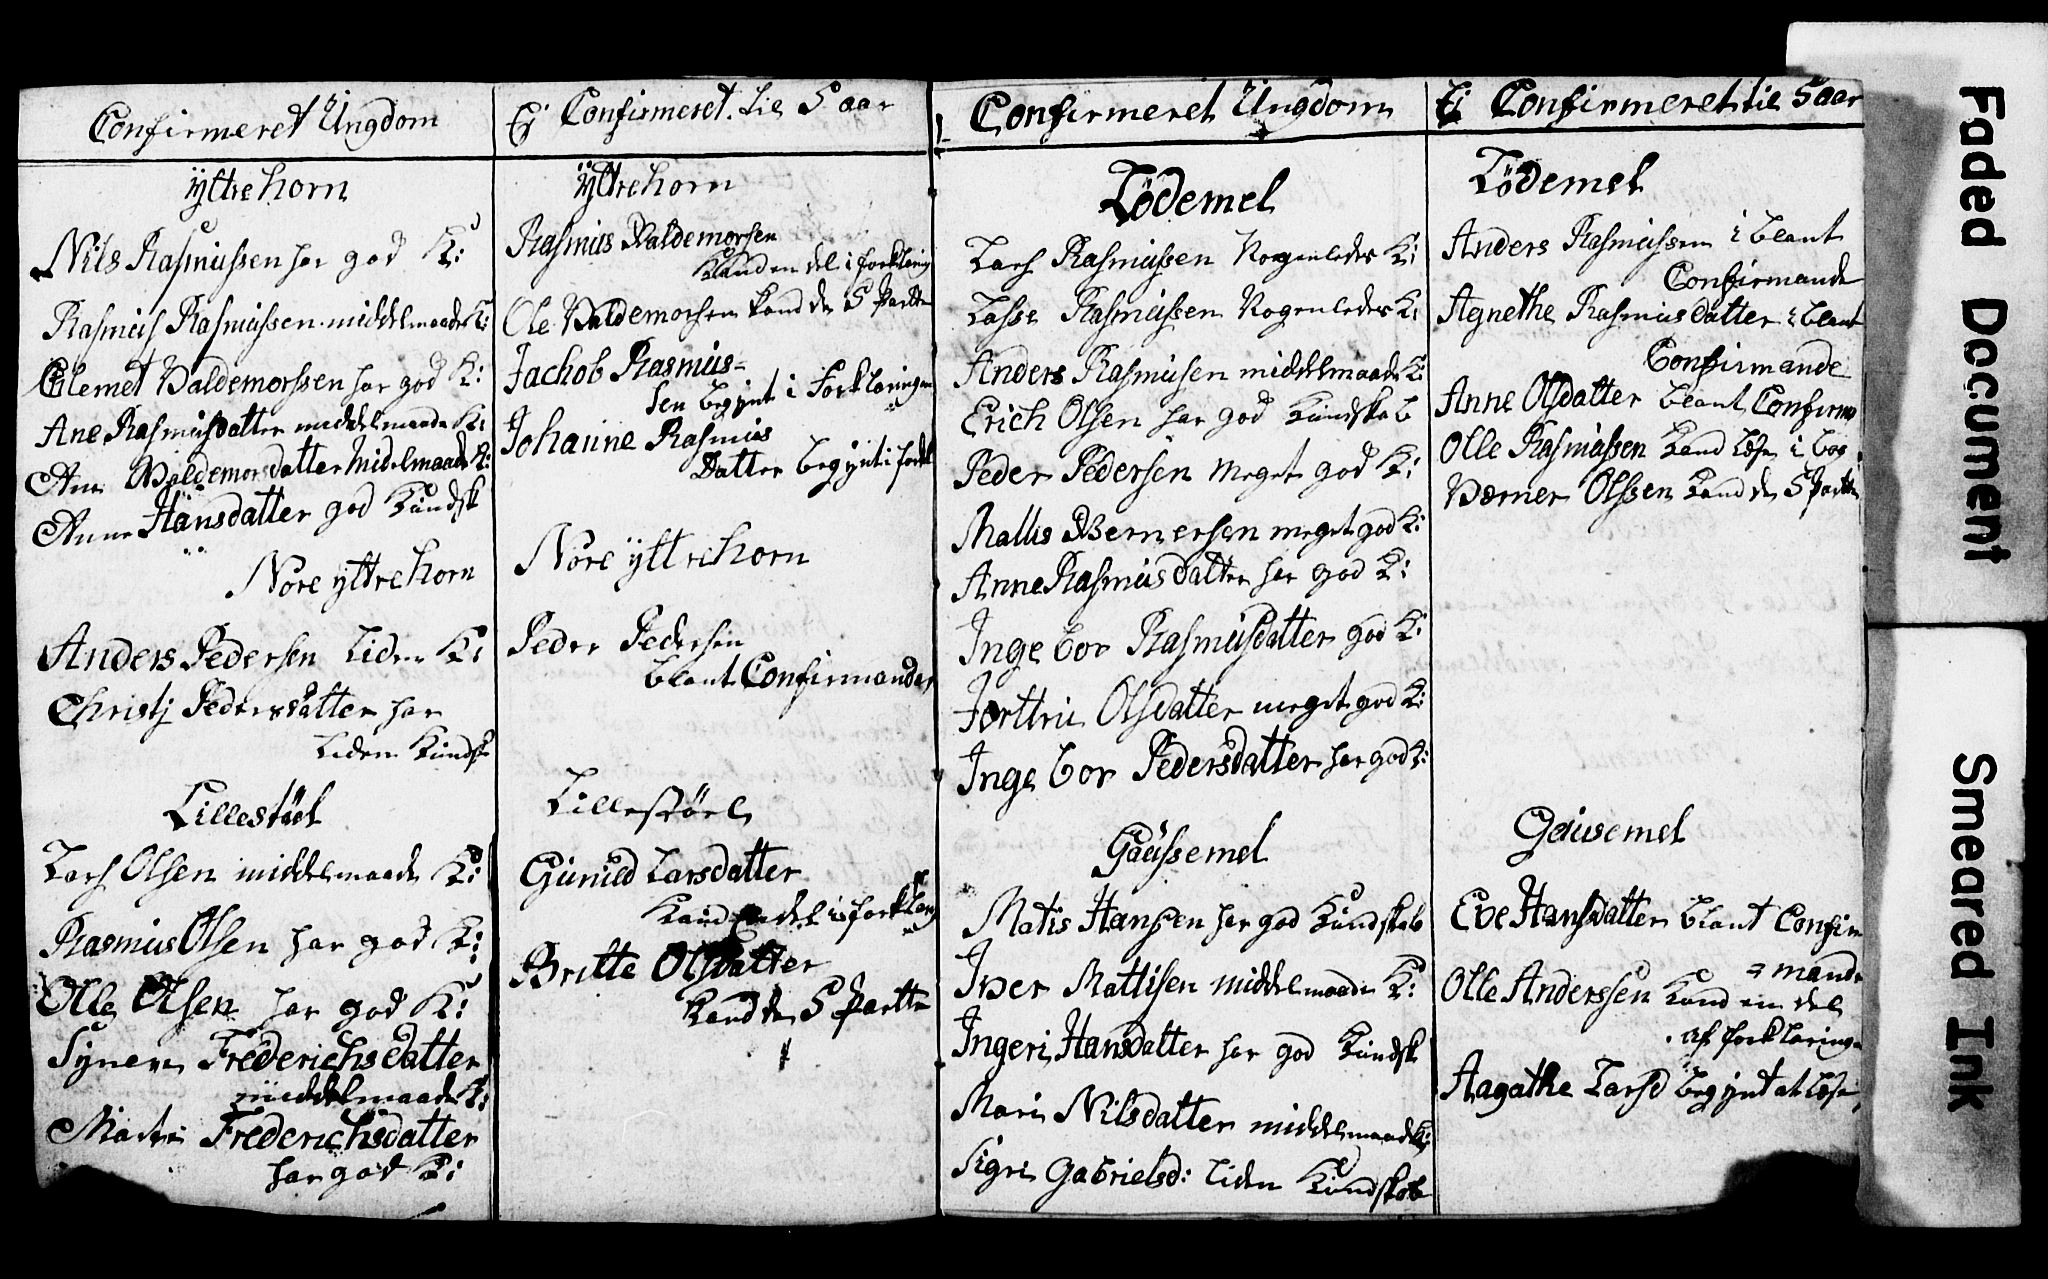 Confirmeret Ungdom
ÿttrehorn
Nils Rasmussen har god K:
Rasmus Rasmussen middelmaade K:
Clemet Valdemorssen har god K:
Ane Rasmusdatter middelmaade K:
Ane Valdemorsdatter midelmaade K:
Anne Hansdatter god Kundsk
Nore ÿttrehorn
Anders Pedersen Liden K:
Christj Pedersdatter har
Liden Kundsk
Lillestöel
Lars Olsen middelmaade K:
Rasmus Olsen har god K:
Olle Olsen har god K:
Synev Frederichsdatter
middelmaade K:
Frederichsdatter
har god K:
Ej Confirmeret til 5 aar
ÿttrehorn
Rasmus Valdemorsen
Kand en del i forklaring
Ole Valdemorsen kand de 5 Partter
Jachob Rasmus-
sen begÿnt i Forklaringen
Johanne Rasmus
Datter begÿnt i forkl
Nore ÿttrehorn
Peder Pedersen
blant Confirmander
Lillestöel
Gunild Larsdatter
Kand en del i forklaring
Britte Olsdatter
Kand de 5 Partte
Confirmeret Ungdom
Lödemel
Lars Rasmussen Nogenledes K:
Lasse Rasmussen Nogenledes K:
Anders Rasmusen middelmaade K:
Erich Olsen har god Kundskab
Peder Pedersen Meget god K:
Mallis Bernersen meget god K:
Anne Rasmusdatter har god K:
Inge bor Rasmusdatter God K:
Jorttru Olsdatter meget god K:
Inge bor Pedersdatter har god K:
Gaussemel
Matis Hansen har god Kundskab
Iver Mattisen middelmaade K:
Ingeri Hansdatter har god Kundsk
Mari Nilsdatter middelmaade K:
Sigri Gabrielsd: liden Kundskab
Ej Confirmeret til 5 aar
Lödemel
Anders Rasmussen i blant
Confirmande
Agnethe Rasmusdatter i blant
Confirmande
Anne Olsdatter blant Confirm
Olle Rasmussen Kand Læse i bog
Verner Olssen Kand de 5 Partter
Gausemel
Eve Hansdatter blant Confir
= mande
Olle Anderssen Kand en del
af forklaringen
Aagathe Larsd begÿnt at Læse
Faded Document
Smeared Ink